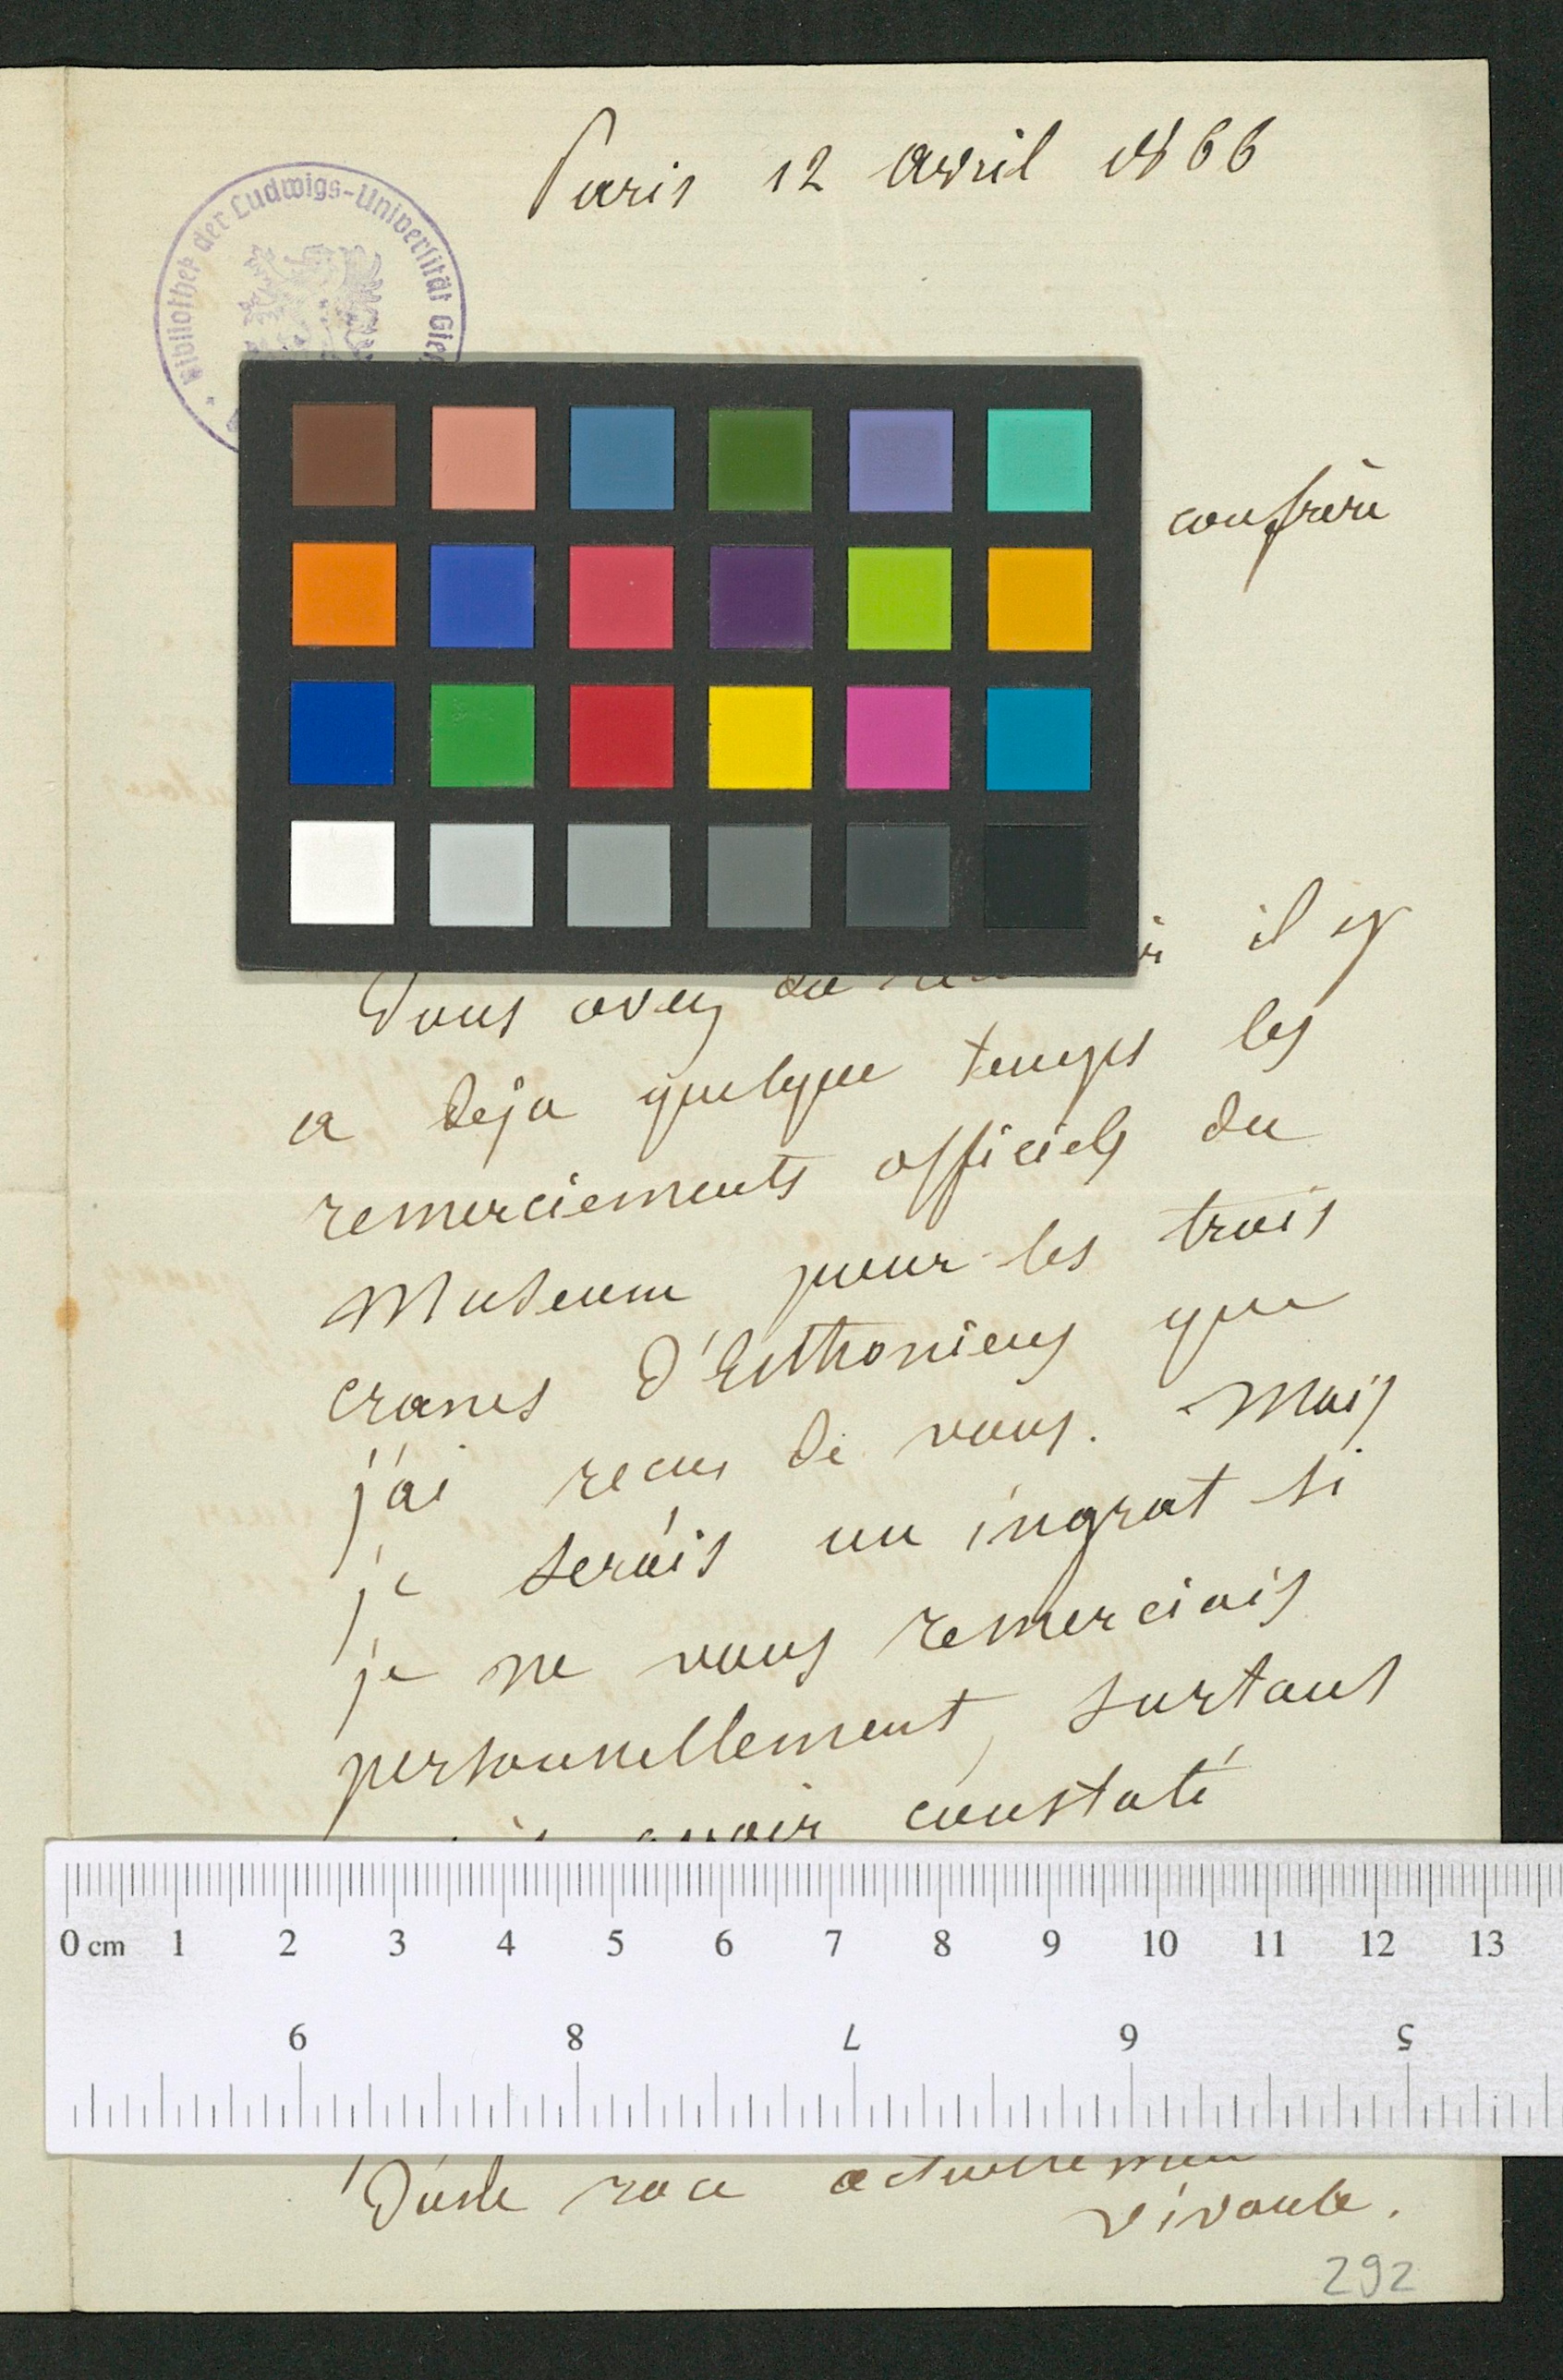 Paris 12 avril 1866
Bibliothek der Ludwigs-Universität Gie
confrère
Vous avez du il y
a deja quelque temps les
remerciements officiels du
Museum pour les trois
cranes d'Esthoniens que
j'ai recus de vous. Mais
je serais un ingrat si
je ne vous remerciais
personnellement, surtout
avoir constaté
0 cm 1 2 3 4 5 6 7 8 9 10 11 12 13
9 8 7 6 5
d'une race actuellement
vivante.
292